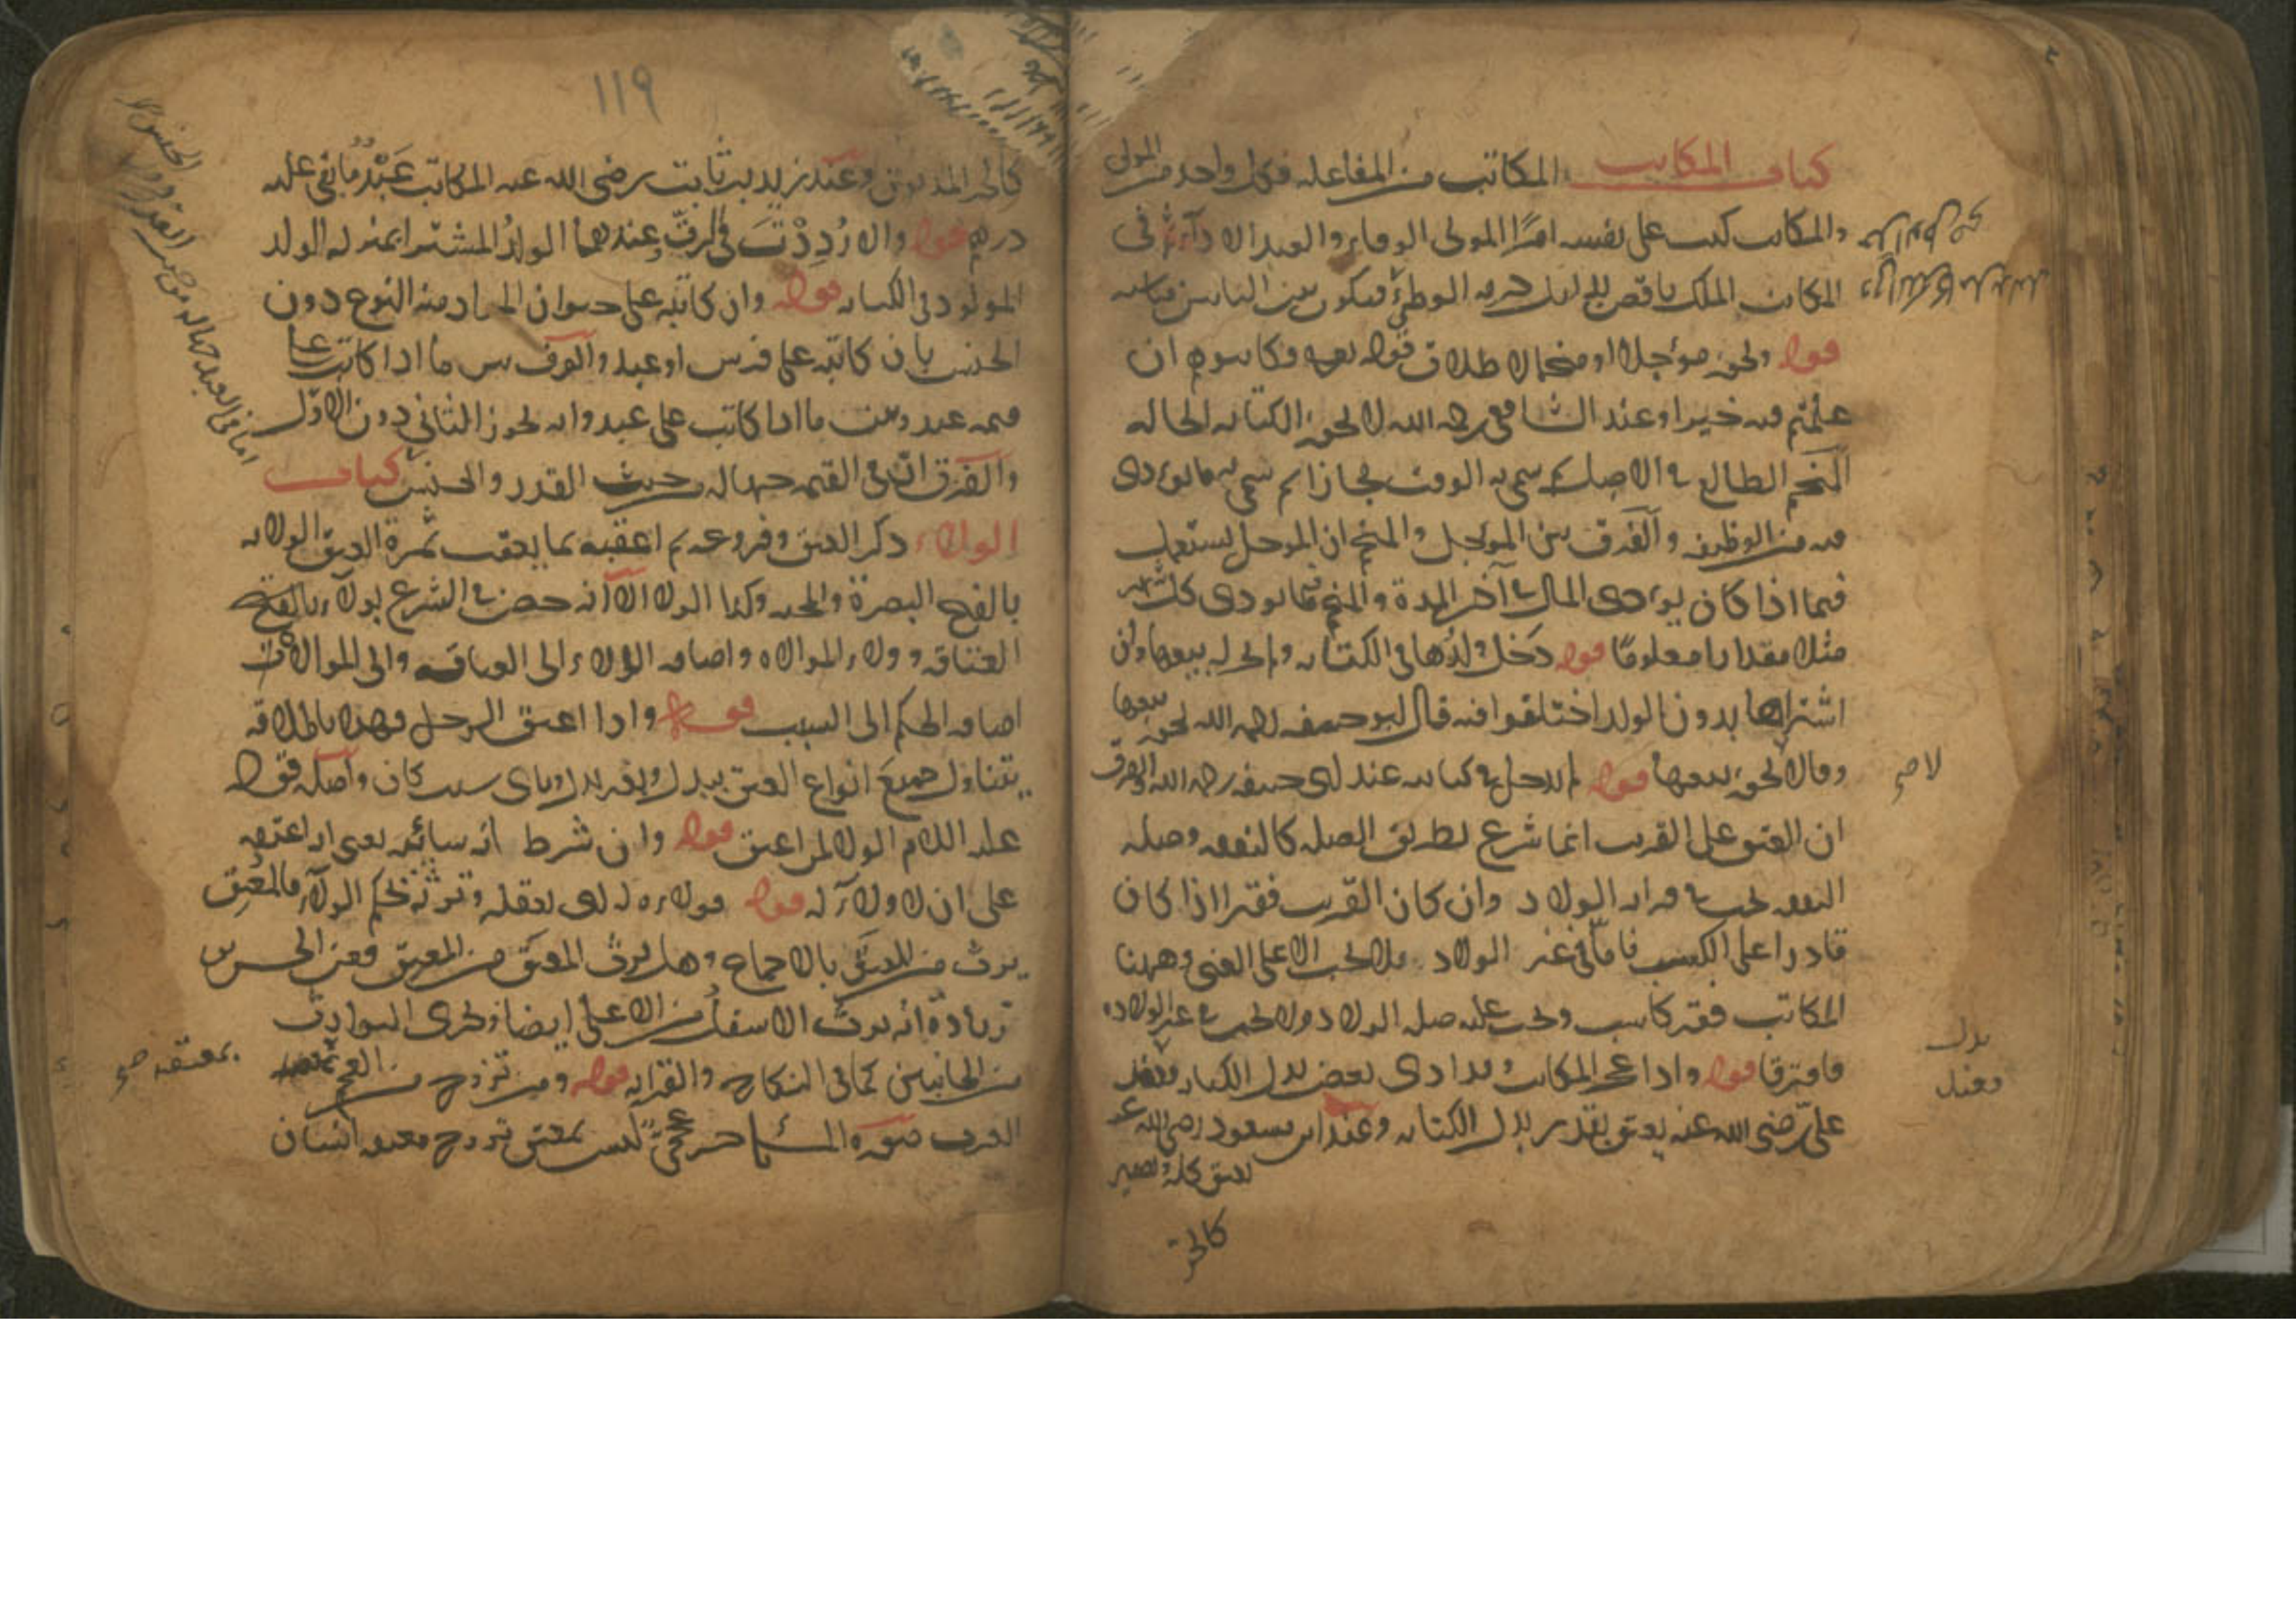 كتاب المكاتب المكاتب من المفاعله فكل واحد من المولى
والمكاتب كتب على نفسه امرًا المولى الوفاء والعبد الادآء وفى
المكاتب الملك ناقص للمولى حرمه الوطئ فيكون بين البابين مناسبه
قوله ويجوز مؤجلا او منجما لاطلاق قوله تعالى فكاتبوهم ان
علمتم فيهم خيرا وعند الشافعى رحمه الله لا يجوز الكتابه الحاله
النجم الطالع فى الاصل سمى به الوقت مجازا ثم سمى به ما يودى
فيه من الوظيفه والفرق بين المؤجل والمنجم ان المؤجل يستعمل
فيما اذا كان يؤدى المال فى آخر المدة والمنجم فيما يودى كل شهر
مثلا مقدارا معلومًا قوله دخل ولدها فى الكتابه ولم يجز له بيعها ولو
اشتراها بدون الولد اختلفوا فيه قال ابو حنيفه رحمه الله يجوز بيعها
وقالا لا يجوز بيعها قوله لم يدخل فى كتابته عند ابى حنيفه رحمه الله والفرق
ان العتق على القريب انما شرع بطريق الصله كالنفقه وصله
النفقه تجب فى قرابه الولاد وان كان القريب فقيرا اذا كان
قادرا على الكسب فاما فى غير الولاد فلا تجب الا على الغنى وههنا
المكاتب فقير كاسب وتجب عليه صله الولاد ولا تجب فى غير الولاده
فافترقا قوله واذا عجز المكاتب وقد ادى بعض بدل الكتابه فعند
على رضى الله عنه يعتق بقدر بدل الكتابه وعند ابن مسعود رضى الله عنه
يعتق كله ويصير
كالحر
لا صح
بدل
فعند
١١٩
كالحر المديون وعند زيد بن ثابت رضى الله عنه المكاتب عبد ما بقى عليه
درهم قوله والا رُدِدْتَ فى الرق وعندهما الولد المشترا بمنزله الولد
المولود فى الكتابه قوله وان كاتبه على حيوان المراد منه النوع دون
الجنس بان كاتبه على فرس او عبد والفرق بين ما اذا كاتب على
قيمه عبد وبين ما اذا كاتب على عبد وانه يجوز الثانى دون الاول
والفرق ان فى القيمه جهاله من حيث القدر والجنس كتاب
الولاء ذكر العتق وفروعه ثم اعقبه بما يعقب ثمرة العتق الولاء
بالفتح النصرة والمحبه وكذا الولاء الا انه خص فى الشرع بولاء بالفتح
العتاقه وولاء الموالاه واضافه الولاء الى العتاقه والى الموالات
اضافه الحكم الى السبب قوله واذا اعتق الرجل فهذا باطلاقه
يتناول جميع انواع العتق ببدل وبغير بدل وباى سبب كان واصله قوله
عليه اللام الولا لمن اعتق قوله وان شرط انه سائبه يعنى ان اعتقه
على ان لا ولآء له قوله فولاءه له لانه يعقله وترثه بحكم الولآء فالمعتِق
يرث من المعتَق بالاجماع وهل يرث المعتَق من المعتِق فعن الحسن بن
زيادة انه يرث الاسفل من الاعلى ايضا ويجرى التوارث
من الجانبين كما فى النكاح والقرابه قوله ومن تزوج من العجم
العرب صوره المسئله حر عجمى ليس بمعتق تزوج معتقه انسان
بمعتقه صح
اما فى العبد جهاله من حيث القدر دون الجنس